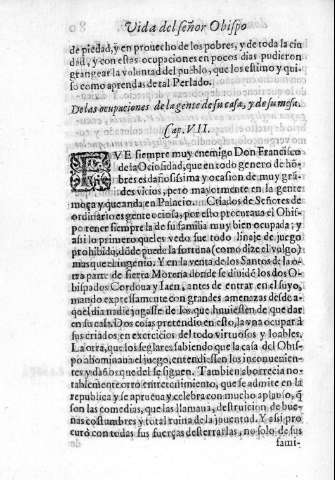 Vida del señor Obispo
de piedad, y en prouecho de los pobres, y de toda la ciu
dad, y con estas ocupaciones en pocos dias pudieron
grangear la voluntad del pueblo, que los estimo y qui-
so como aprendas de tal Perlado.
De las ocupaciones de la gente de su casa, y de su mesa.
Cap. VII.
FVE siempre muy enemigo Don Francisco
de la Ociosidad, que en todo genero de hō-
bres es dañosissima y ocasion de muy grā-
des vicios, pero mayormente en la gente
moça y que anda en Palacio. Criados de Señores de
ordinario es gente ociosa, por esto procuraua el Obis-
po tener siempre la de su familia muy bien ocupada; y
assi lo primero que les vedo fue todo linaje de juego
prohibido, dōde puede la fortuna (como dize el vulgo)
mas que el ingenio. Y en la venta de los Santos de la o-
tra parte de sierra Morena donde se diuidē los dos O-
bispados Cordoua y Iaen, antes de entrar en el suyo,
mando expressamente con grandes amenazas desde a-
quel dia nadie jugasse de los que huuiessen de quedar
en su casa. Dos cosas pretendio en esto, la vna ocupar à
sus criados en exercicios del todo virtuosos y loables.
La otra, que los seglares sabiendo que la casa del Obis-
po abominaua el juego, entendiessen los inconuenien-
tes y daños que del se siguen. Tambien aborrecia no-
tablemente otro entretenimiento, que se admite en la
republica y se aprueua y celebra con mucho aplauso, q̄
son las comedias, que las llamaua, destruicion de bue-
nas costumbres y total ruina de la juuentud. Y assi pro-
curò con todas sus fuerças desterrarlas, no solo de sus
fami-